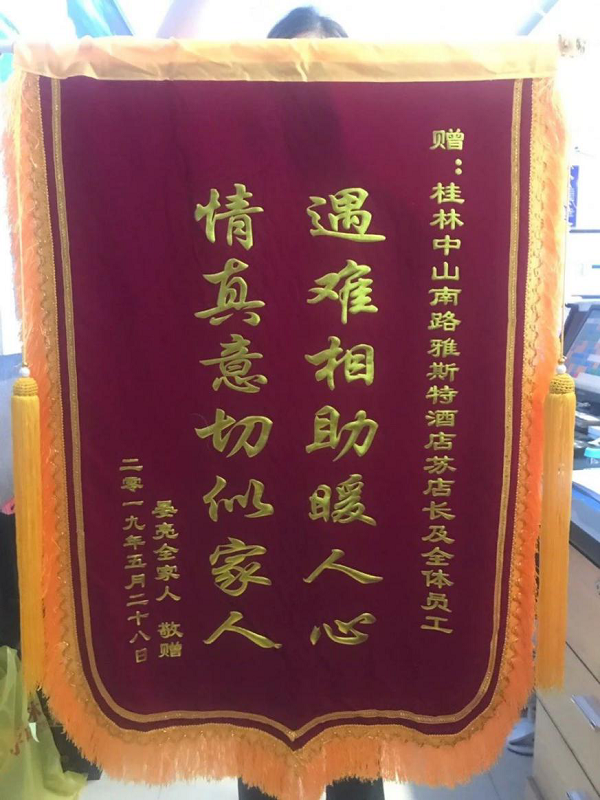 赠：桂林中山南路雅斯特酒店苏店长及全体员工
遇难相助暖人心
情真意切似家人
晏亮全家人 敬赠
二零一九年五月二十八日